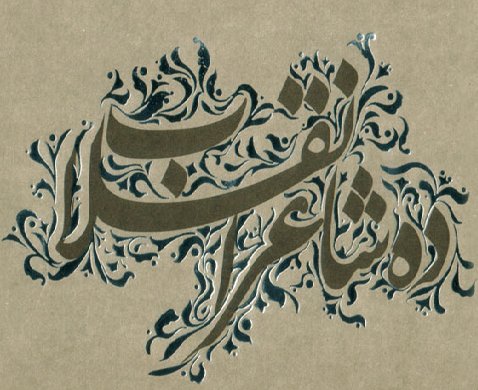 ده شاعر انقلاب